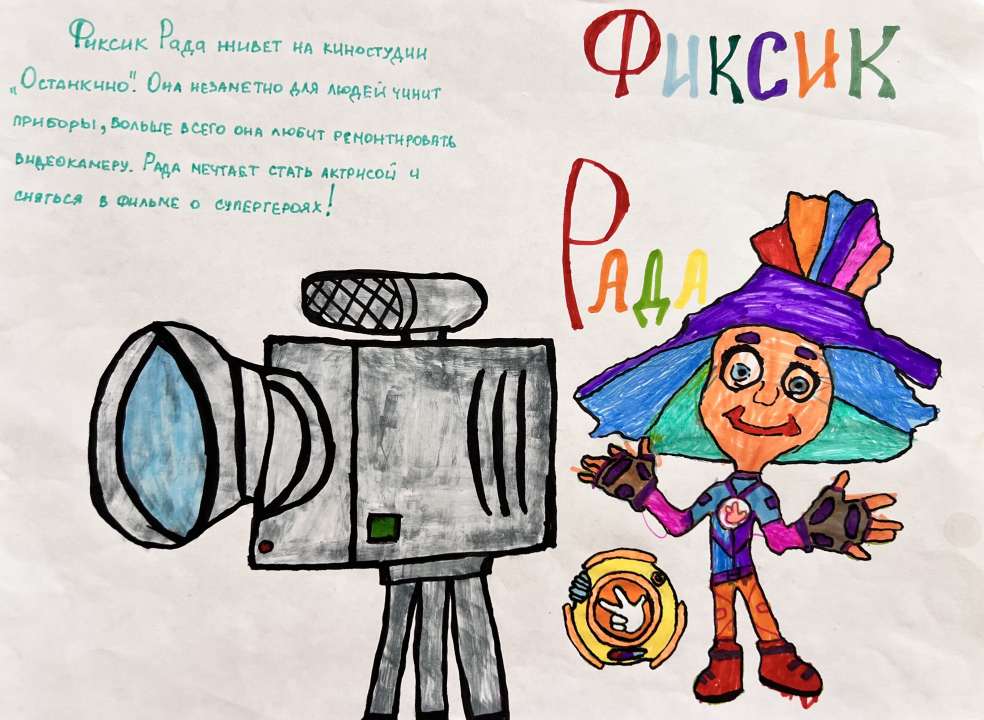 Фиксик Рада живет на киностудии
„Останкино". Она незаметно для людей чинит
приборы, больше всего она любит ремонтировать
видеокамеру. Рада мечтает стать актрисой и
сняться в фильме о супергероях!
Фиксик
Рада